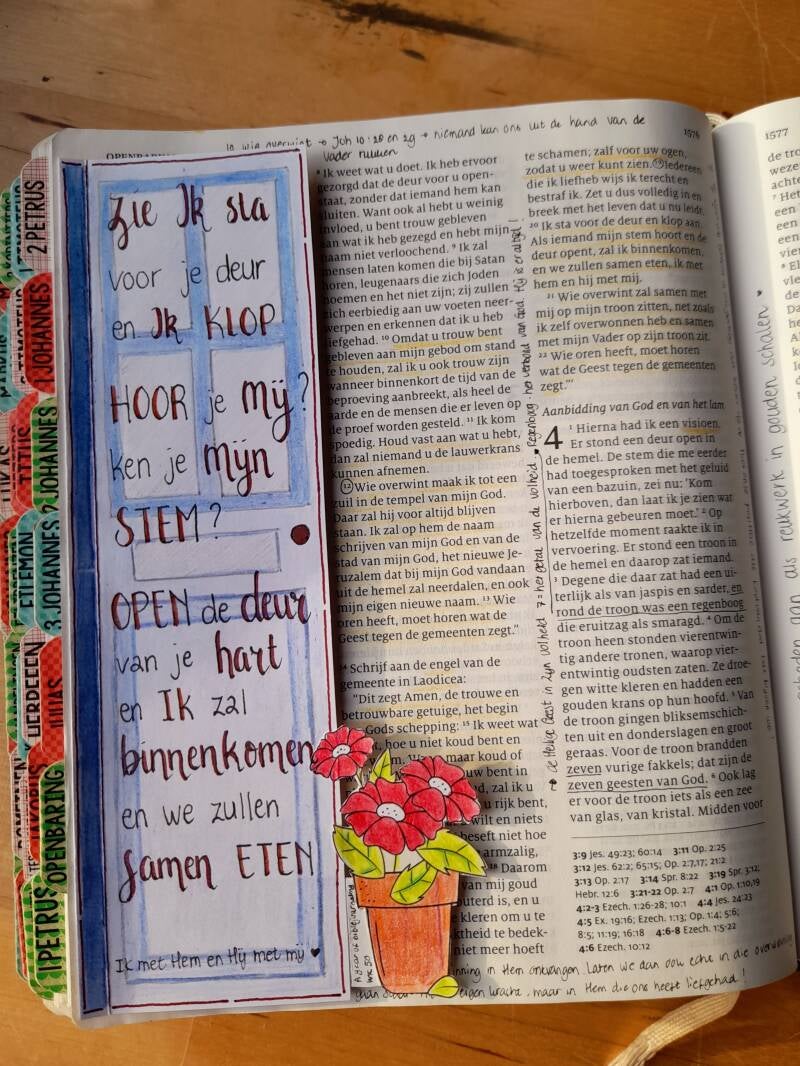 10 wie overwint → Joh 10:28 en 29 → niemand kan ons uit de hand van de
Vader rukken
1576
1577
2 PETRUS
1 JOHANNES
2 JOHANNES
TITUS
LUKAS
FILEMON
3 JOHANNES
HEBREEEN
JUDAS
JAKOBUS
OPENBARING
1 PETRUS
Zie Ik sta
voor je deur
en Ik KLOP
HOOR je mij?
ken je mijn
STEM?
OPEN de deur
van je hart
en Ik zal
binnenkomen
en we zullen
samen ETEN
Ik met Hem en Hij met mij ♥
A year of biblejournaling
wk 50
⁸ Ik weet wat u doet. Ik heb ervoor
gezorgd dat de deur voor u open-
staat, zonder dat iemand hem kan
sluiten. Want ook al hebt u weinig
invloed, u bent trouw gebleven
aan wat ik heb gezegd en hebt mijn
naam niet verloochend. ⁹ Ik zal
mensen laten komen die bij Satan
horen, leugenaars die zich Joden
noemen en het niet zijn; zij zullen
zich eerbiedig aan uw voeten neer-
werpen en erkennen dat ik u heb
liefgehad. ¹⁰ Omdat u trouw bent
gebleven aan mijn gebod om stand
te houden, zal ik ook trouw zijn
wanneer binnenkort de tijd van de
beproeving aanbreekt, als heel de
aarde en de mensen die er leven op
de proef worden gesteld. ¹¹ Ik kom
spoedig. Houd vast aan wat u hebt,
dan zal niemand u de lauwerkrans
kunnen afnemen.
⑫ Wie overwint maak ik tot een
zuil in de tempel van mijn God.
Daar zal hij voor altijd blijven
staan. Ik zal op hem de naam
schrijven van mijn God en van de
stad van mijn God, het nieuwe Je-
ruzalem dat bij mijn God vandaan
uit de hemel zal neerdalen, en ook
mijn eigen nieuwe naam. ¹³ Wie
oren heeft, moet horen wat de
Geest tegen de gemeenten zegt.”
¹⁴ Schrijf aan de engel van de
gemeente in Laodicea:
“Dit zegt Amen, de trouwe en
betrouwbare getuige, het begin
Gods schepping: ¹⁵ Ik weet wat
hoe u niet koud bent en
maar koud of
uw bent in
d, zal ik u
u rijk bent,
wilt en niets
beseft niet hoe
armzalig,
¹⁸ Daarom
van mij goud
uterd is, en u
e kleren om u te
ktheid te bedek-
niet meer hoeft
te schamen; zalf voor uw ogen,
zodat u weer kunt zien. ⑲ Iedereen
die ik liefheb wijs ik terecht en
bestraf ik. Zet u dus volledig in en
breek met het leven dat u nu leidt.
²⁰ Ik sta voor de deur en klop aan.
Als iemand mijn stem hoort en de
deur opent, zal ik binnenkomen,
en we zullen samen eten, ik met
hem en hij met mij.
²¹ Wie overwint zal samen met
mij op mijn troon zitten, net zoals
ik zelf overwonnen heb en samen
met mijn Vader op zijn troon zit.
²² Wie oren heeft, moet horen
wat de Geest tegen de gemeenten
zegt.”’
Aanbidding van God en van het lam
4 ¹ Hierna had ik een visioen.
Er stond een deur open in
de hemel. De stem die me eerder
had toegesproken met het geluid
van een bazuin, zei nu: ‘Kom
hierboven, dan laat ik je zien wat
er hierna gebeuren moet.’ ² Op
hetzelfde moment raakte ik in
vervoering. Er stond een troon in
de hemel en daarop zat iemand.
³ Degene die daar zat had een ui-
terlijk als van jaspis en sarder, en
rond de troon was een regenboog
die eruitzag als smaragd. ⁴ Om de
troon heen stonden vierentwin-
tig andere tronen, waarop vier-
entwintig oudsten zaten. Ze droe-
gen witte kleren en hadden een
gouden krans op hun hoofd. ⁵ Van
de troon gingen bliksemschich-
ten uit en donderslagen en groot
geraas. Voor de troon brandden
zeven vurige fakkels; dat zijn de
zeven geesten van God. ⁶ Ook lag
er voor de troon iets als een zee
van glas, van kristal. Midden voor
3:9 Jes. 49:23; 60:14 3:11 Op. 2:25
3:12 Jes. 62:2; 65:15; Op. 2:7,17; 21:2
3:13 Op. 2:17 3:14 Spr. 8:22 3:19 Spr. 3:12;
Hebr. 12:6 3:21-22 Op. 2:7 4:1 Op. 1:10,19
4:2-3 Ezech. 1:26-28; 10:1 4:4 Jes. 24:23
4:5 Ex. 19:16; Ezech. 1:13; Op. 1:4; 5:6;
8:5; 11:19; 16:18 4:6-8 Ezech. 1:5-22
4:6 Ezech. 10:12
→ de Heilige Geest in Zijn volheid 7 = het getal van de volheid
Regenboog: het verbond van God. Hij is er altijd!
nning in Hem ontvangen. Laten we dan ook echt in die overwinning
eigen kracht, maar in Hem die ons heeft liefgehad!
als reukwerk in gouden schalen ♥